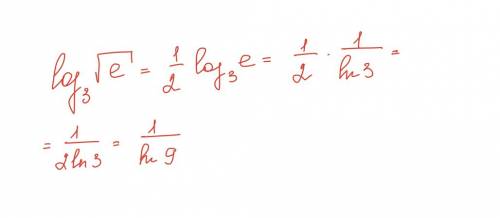 log₃√e = 1/2 log₃e = 1/2 · 1/ln 3 =
= 1/2ln3 = 1/ln 9